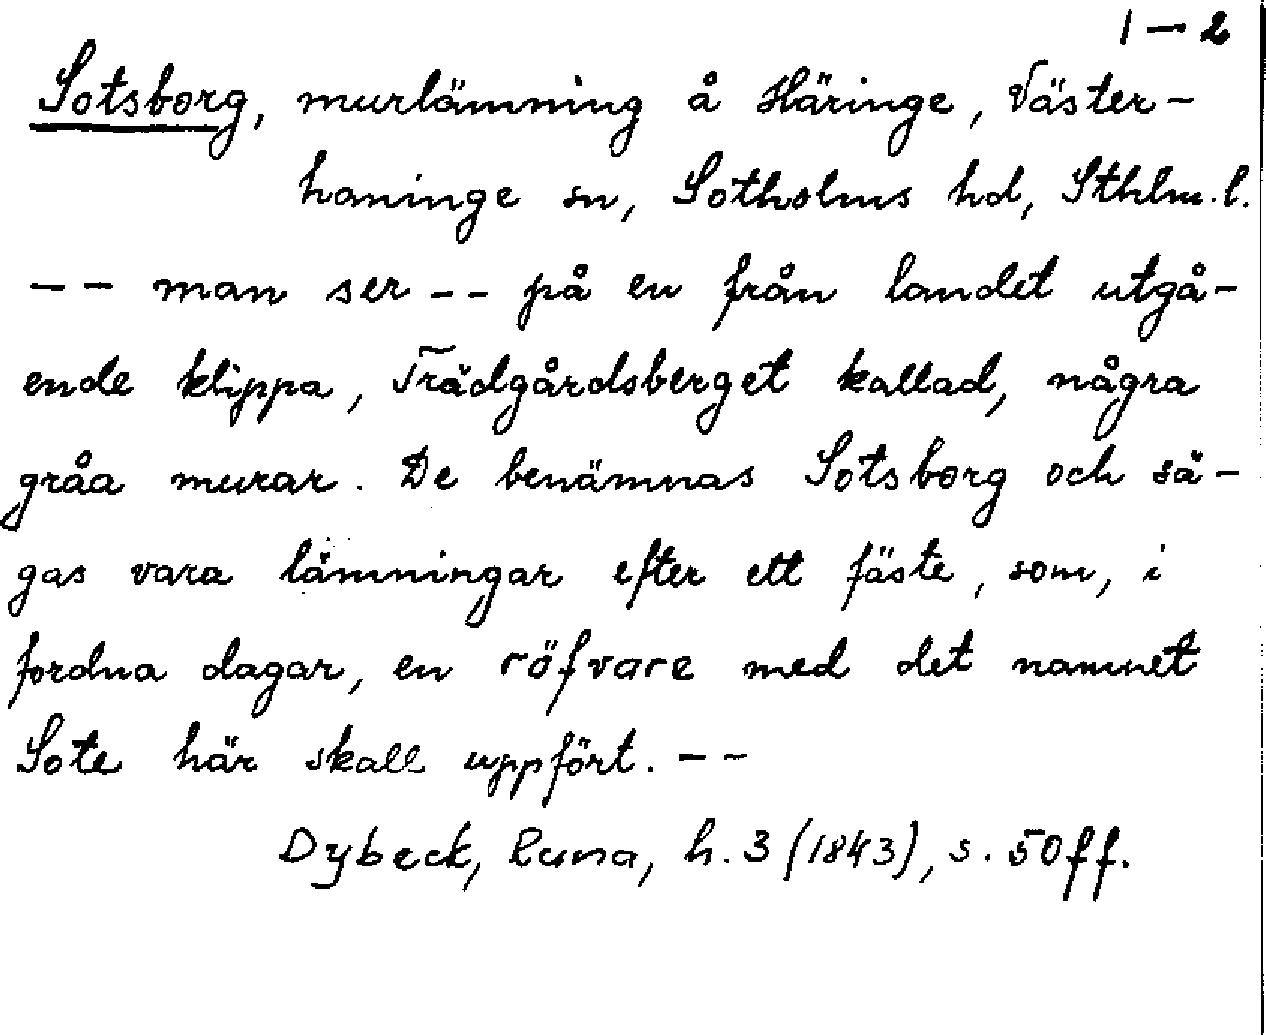 1 — 2
Sotsborg, murlämning å Häringe, Väster-
haninge sn, Sotholms hd, Sthlm.l.
-- man ser -- på en från landet utgå-
ende klippa, Trädgårdsberget kallad, några
gråa murar. De benämnas Sotsborg och sä-
gas vara lämningar efter ett fäste, som, i
fordna dagar, en röfvare med det namnet
Sote här skall uppfört. --
Dybeck, Runa, h. 3 (1843), s. 50 ff.